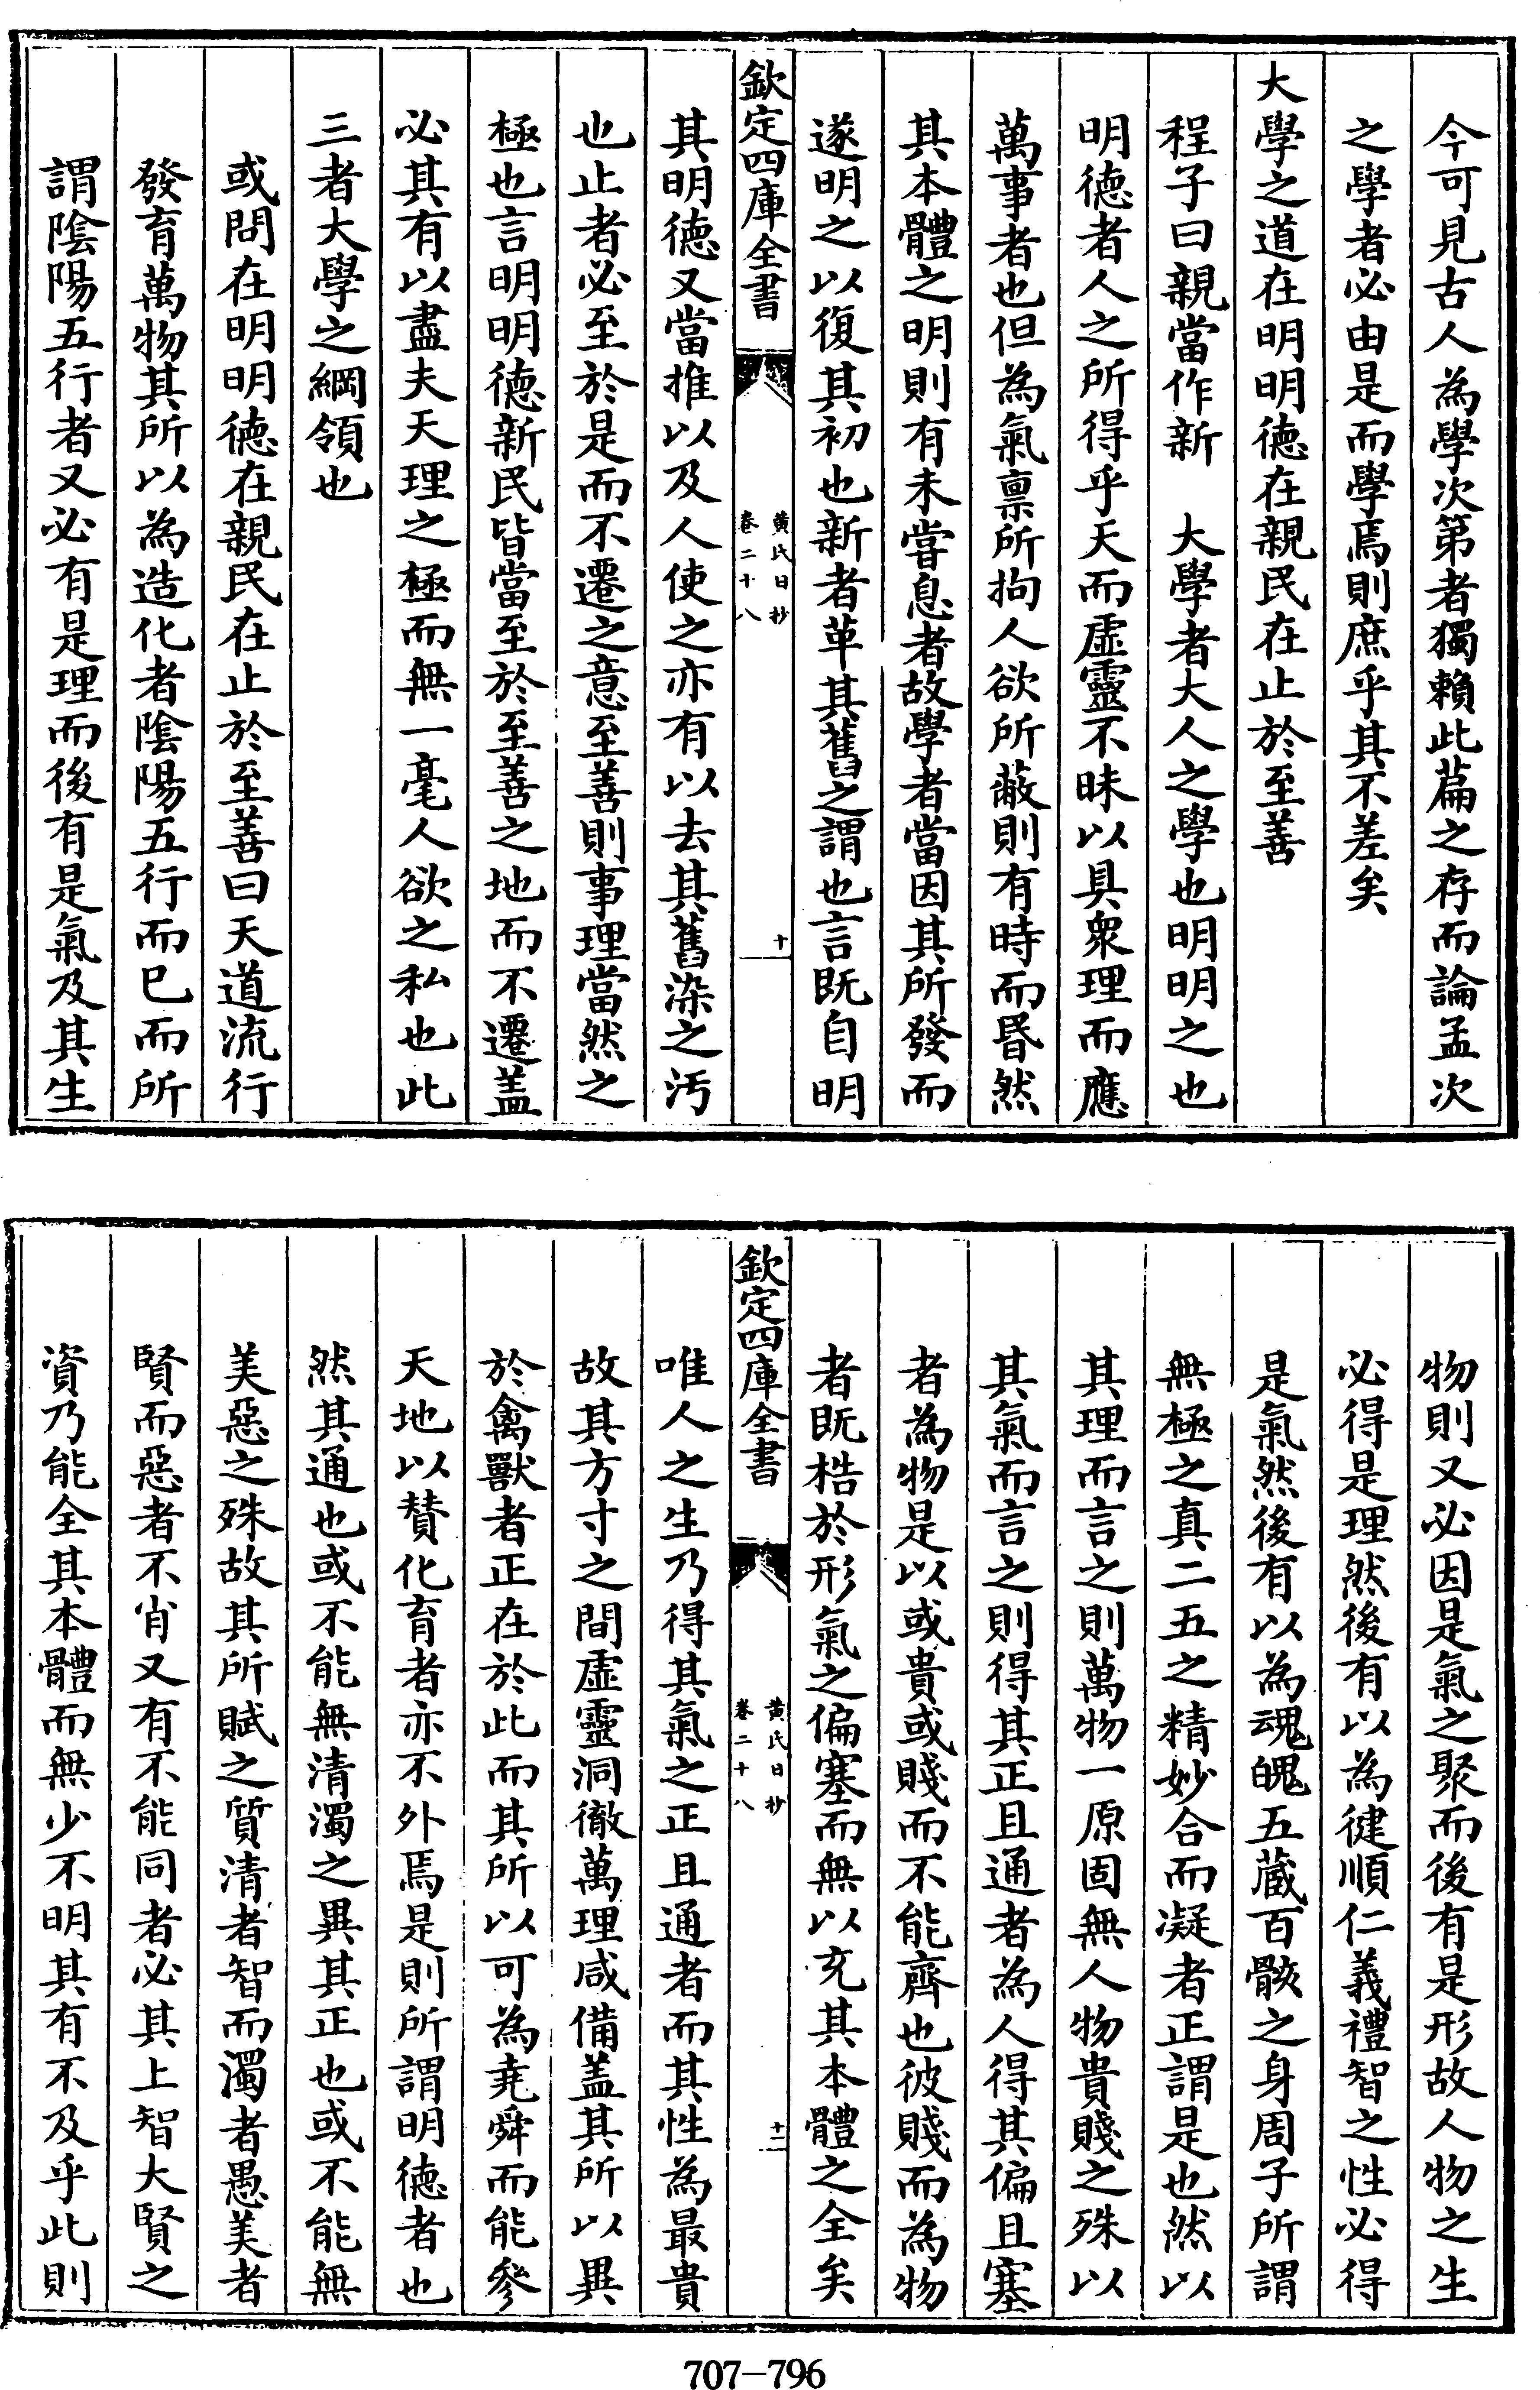 今可見古人為學次第者獨賴此萹之存而論孟次
之學者必由是而學焉則庶乎其不差矣
大學之道在明明徳在親民在止於至善
程子曰親當作新　大學者大人之學也明明之也
明徳者人之所得乎天而虚靈不昧以具衆理而應
萬事者也但為氣禀所拘人欲所蔽則有時而昬然
其本體之明則有未嘗息者故學者當因其所發而
遂明之以復其初也新者革其舊之謂也言既自明
欽定四庫全書
黄氏日抄
卷二十八
十
其明徳又當推以及人使之亦有以去其舊染之汚
也止者必至於是而不遷之意至善則事理當然之
極也言明明徳新民皆當至於至善之地而不遷盖
必其有以盡夫天理之極而無一毫人欲之私也此
三者大學之綱領也
或問在明明徳在親民在止於至善曰天道流行
發育萬物其所以為造化者隂陽五行而已而所
謂隂陽五行者又必有是理而後有是氣及其生
物則又必因是氣之聚而後有是形故人物之生
必得是理然後有以為健順仁義禮智之性必得
是氣然後有以為魂魄五蔵百骸之身周子所謂
無極之真二五之精妙合而凝者正謂是也然以
其理而言之則萬物一原固無人物貴賤之殊以
其氣而言之則得其正且通者為人得其偏且塞
者為物是以或貴或賤而不能齊也彼賤而為物
者既梏於形氣之偏塞而無以充其本體之全矣
欽定四庫全書
黄氏日抄
卷二十八
十一
唯人之生乃得其氣之正且通者而其性為最貴
故其方寸之間虚靈洞徹萬理咸備盖其所以異
於禽獸者正在於此而其所以可為堯舜而能參
天地以賛化育者亦不外焉是則所謂明徳者也
然其通也或不能無清濁之異其正也或不能無
美惡之殊故其所賦之質清者智而濁者愚美者
賢而惡者不肖又有不能同者必其上智大賢之
資乃能全其本體而無少不明其有不及乎此則
707-796